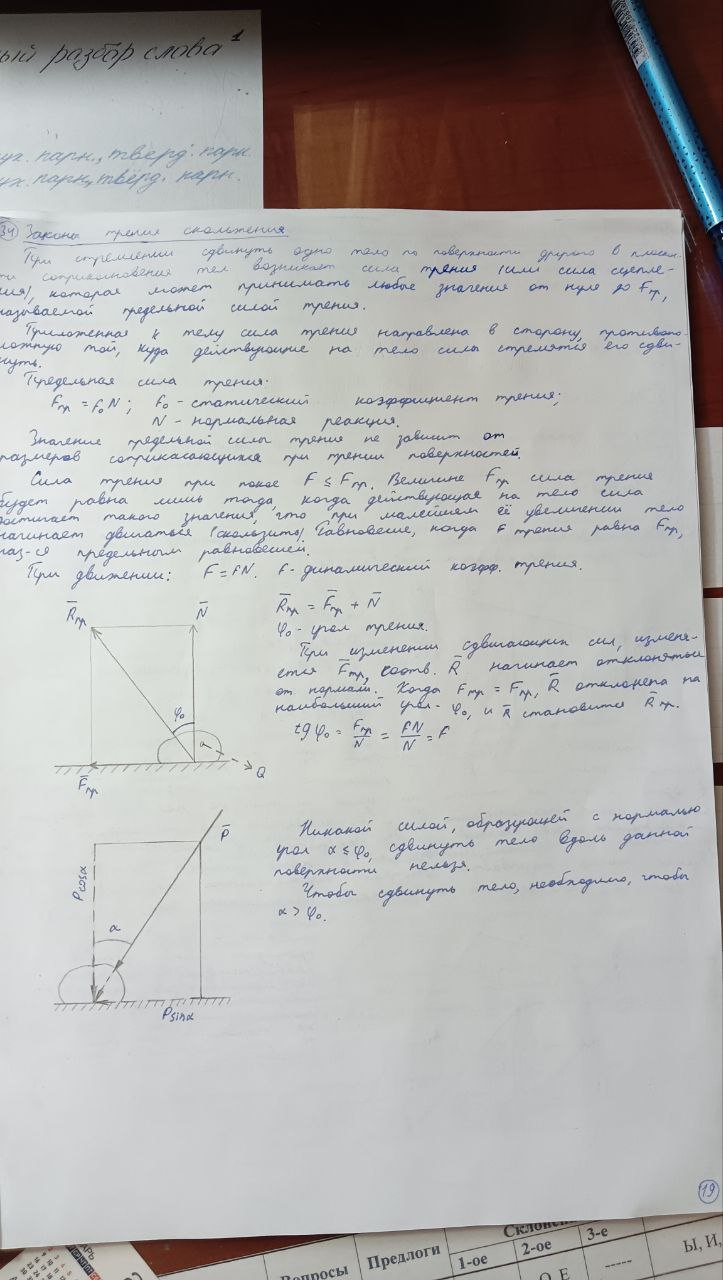 ый разбор слова 1
ух. парн., тверд. парн.
ух. парн., тверд. парн.
34 Законы трения скольжения
При стремлении сдвинуть одно тело по поверхности другого в плоскос-
ти соприкосновения тел возникает сила трения (или сила сцепле-
ния), которая может принимать любые значения от нуля до Fпр,
называемой предельной силой трения.
Приложенная к телу сила трения направлена в сторону, противопо-
ложную той, куда действующие на тело силы стремятся его сдви-
нуть.
Предельная сила трения:
Fпр = f₀N; f₀ - статический коэффициент трения;
N - нормальная реакция.
Значение предельной силы трения не зависит от
размеров соприкасающихся при трении поверхностей.
Сила трения при покое F ≤ Fпр. Величине Fпр сила трения
будет равна лишь тогда, когда действующая на тело сила
достигает такого значения, что при малейшем её увеличении тело
начинает двигаться (скользить). Равновесие, когда F трения равна Fпр,
наз-ся предельным равновесием.
При движении: F = fN. f - динамический коэфф. трения.
R̅пр N̅
φ₀
α
Q
F̅пр
R̅пр = F̅пр + N̅
φ₀ - угол трения.
При изменении сдвигающих сил, изменя-
ется F̅тр, соотв. R̅ начинает отклоняться
от нормали. Когда Fтр = Fпр, R̅ отклонена на
наибольший угол - φ₀, и R̅ становится R̅пр.
tg φ₀ = Fпр/N = fN/N = f
P̅
Pcosα
α
Psinα
Никакой силой, образующей с нормалью
угол α ≤ φ₀, сдвинуть тело вдоль данной
поверхности нельзя.
Чтобы сдвинуть тело, необходимо, чтобы
α > φ₀.
19
Вопросы
Предлоги
Склонен
1-ое
2-ое
3-е
О, Е
-----
Ы, И,